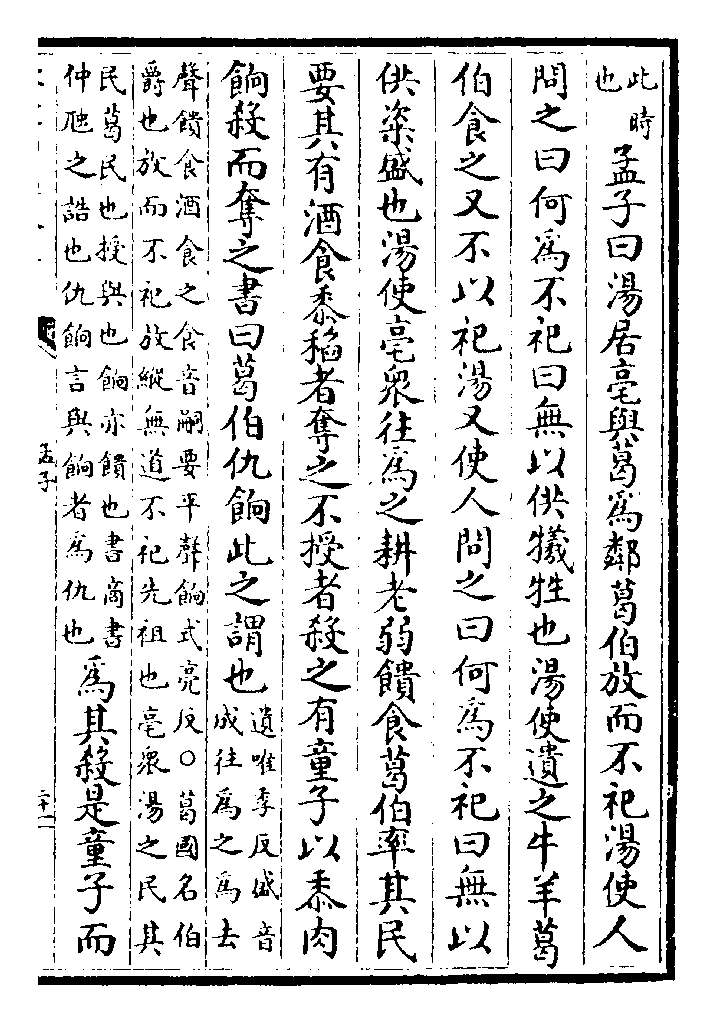 此時也孟子曰湯居亳與葛爲鄰葛伯放而不祀湯使人
問之曰何爲不祀曰無以供犧牲也湯使遺之牛羊葛
伯食之又不以祀湯又使人問之曰何爲不祀曰無以
供粢盛也湯使亳衆往爲之耕老弱饋食葛伯率其民
要其有酒食黍稻者奪之不授者殺之有童子以黍肉
餉殺而奪之書曰葛伯仇餉此之謂也遺唯季反盛音
成往爲之爲去
聲饋食酒食之食音嗣要平聲餉式亮反○葛國名伯
爵也放而不祀放縱無道不祀先祖也亳衆湯之民其
民葛民也授與也餉亦饋也書商書
仲虺之誥也仇餉言與餉者爲仇也爲其殺是童子而
孟子